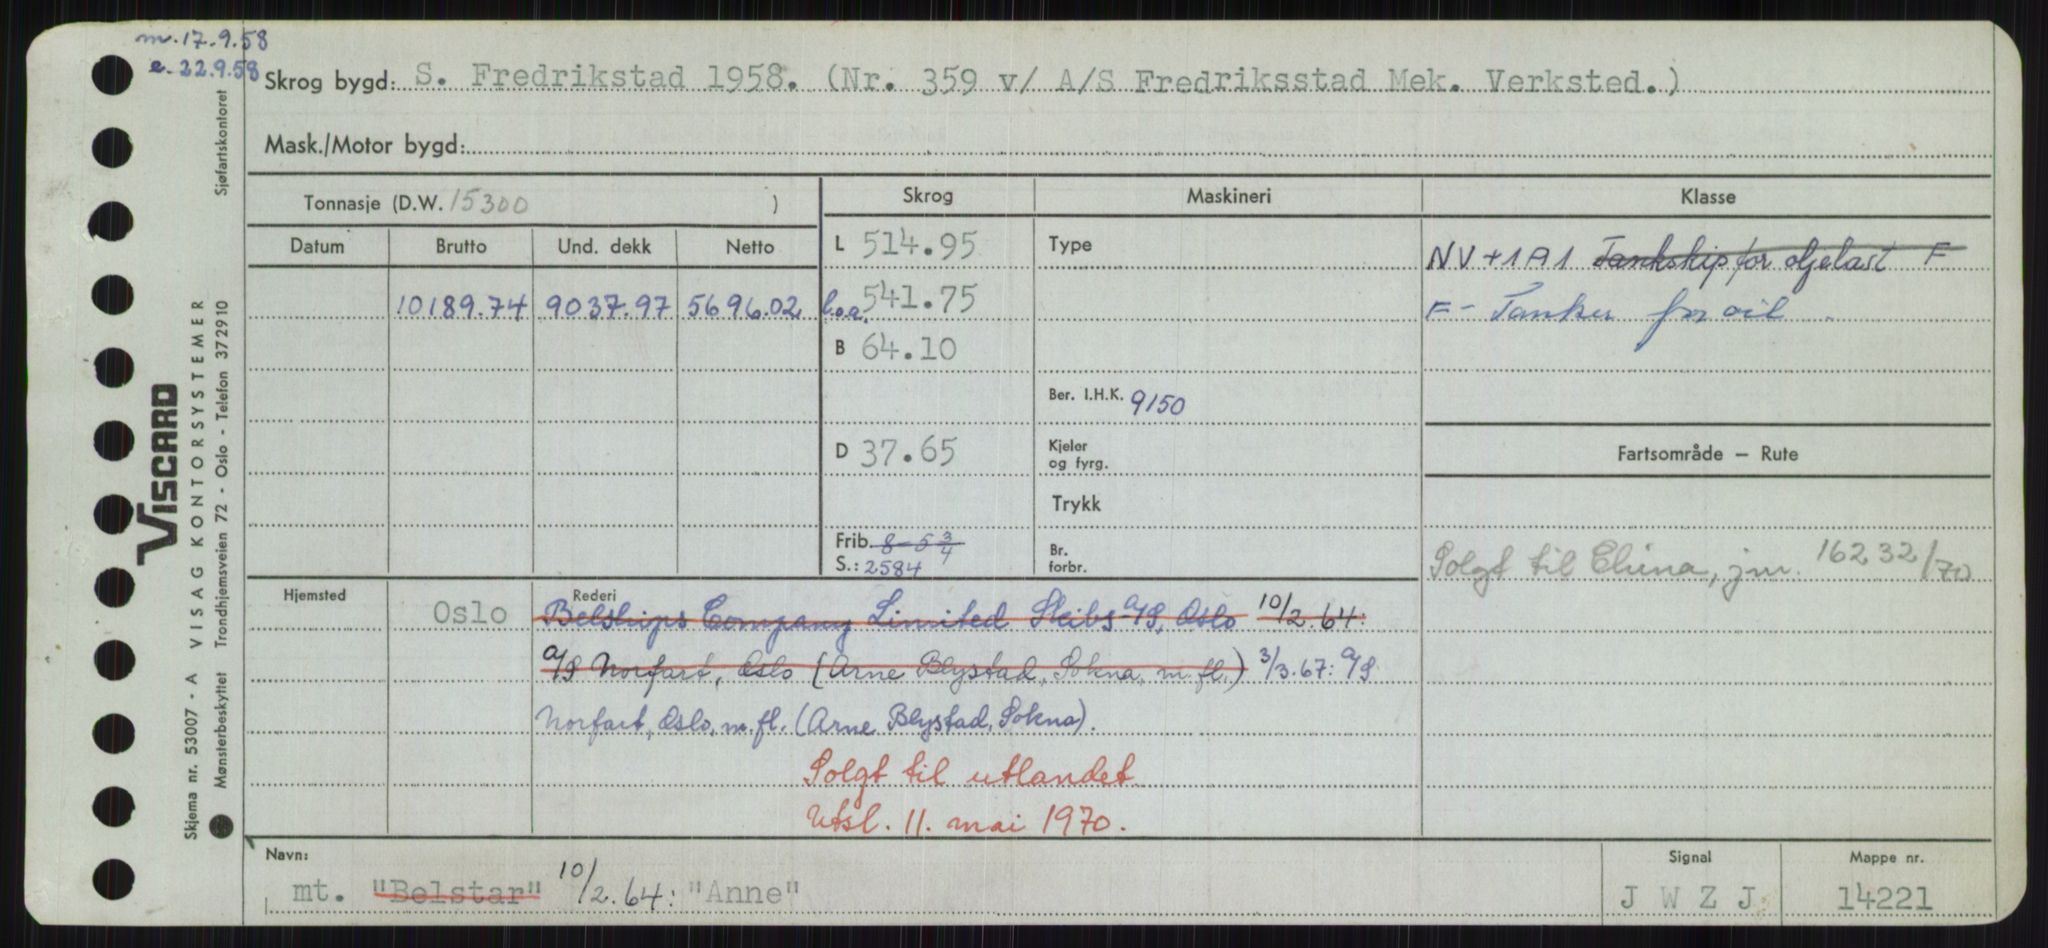 m. 17.9.58
e. 22.9.58
Skrog bygd: S. Fredrikstad 1958. (Nr. 359 v/ A/S Fredriksstad Mek. Verksted.)
Mask./Motor bygd:
Tonnasje (D.W. 15300 )
Skrog Maskineri Klasse
Datum Brutto Und. dekk Netto
L 514.95
Type
NV+1A1 Tankskip for oljelast F
10189.74 9037.97 5696.02
l.o.a. 541.75
F- Tanker for oil
B 64.10
Ber. I.H.K. 9150
D 37.65
Kjeler
og fyrg.
Fartsområde — Rute
Trykk
Frib. 8-5 3/4
S.: 2584
Br.
forbr.
Solgt til China, jm. 16232/70
Hjemsted Rederi
Oslo Belships Company Limited Skibs A/S, Oslo 10/2.64:
A/S Norfart, Oslo (Arne Blystad, Sokna, m.fl.) 3/3.67: A/S
Norfart, Oslo, m.fl. (Arne Blystad, Sokna).
Solgt til utlandet
Utsl. 11. mai 1970.
Navn: Signal Mappe nr.
mt. "Belstar" 10/2.64: "Anne" J W Z J 14221
VISCARD
Skjema nr. 53007 - A VISAG KONTORSYSTEMER
Mønsterbeskyttet Trondhjemsveien 72 - Oslo - Telefon 372910 Sjøfartskontoret